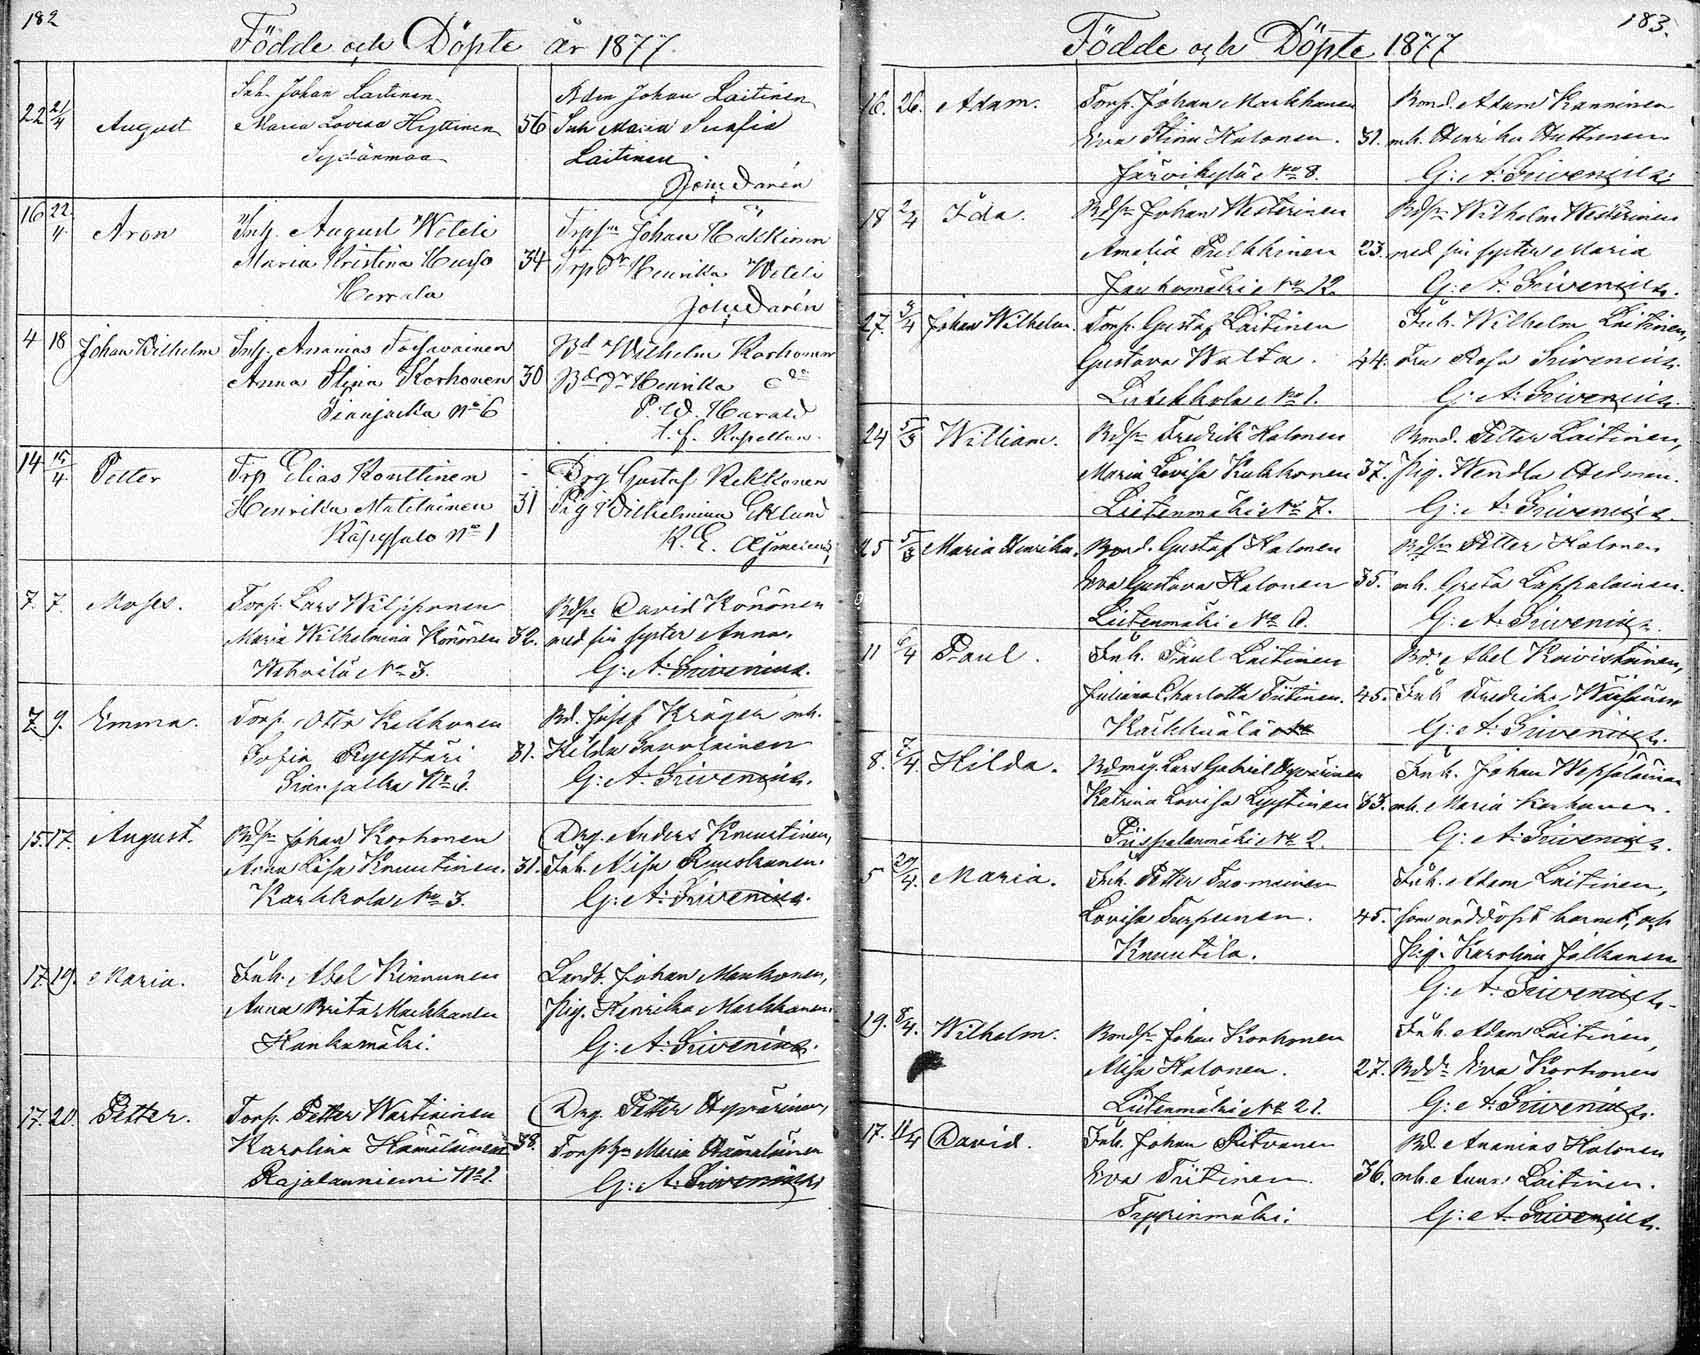 182
Födde och Döpte år 1877.
22 21/4 August
Inh. Johan Laitinen
Maria Lovisa Hyttinen 36
Sydänmaa
Bdm Johan Laitinen
Inh Maria
Laitinen
Joh. Darén
16 22/4 Aron
Inh. August Weteli
Maria Kristina Husso 34
Herrala
Trpsn Johan Häkkinen
Trp dr Henrika Weteli
Joh. Darén
4 18 Johan Wilhelm
Inh. Ananias Torvavainen
Anna Stina Korhonen 30
Sianjalka No 6
Bd Wilhelm Korhonen
Bd dr Henrika do
P. W. Harald
t. f. Kapellan.
14 15/4 Petter
Trp Elias Konttinen
Henrika Matilainen 31
Käpysalo No 1
Drg Gustaf Kekkonen
Pig Wilhelmina Eklund
K. E.
7. 7. Moses.
Torp. Lars Wilpponen
Maria Wilhelmina Könönen 32.
No 3.
Bdsn David Könönen
med sin syster Anna.
G: A: Srivenius.
7. 9. Emma.
Torp. Otto Kekkonen
Sofia Ryystäri 31.
Sianjalka No 3.
Bd. Josef Kröger mh.
Hilda Savolainen
G: A: Srivenius.
15. 17. August.
Bdsn Johan Korhonen
Anna Lisa Knuutinen. 31.
Karkkola No 3.
Drg. Anders Knuutinen,
Inh. Alisa Ruuskanen.
G: A: Srivenius.
17. 19. Maria.
Inh. Abel Kinnunen
Anna Brita Markkanen
Hankamäki.
Landb. Johan Mankonen,
pig. Henrika Markkanen.
G: A: Srivenius.
17. 20. Petter.
Torp. Petter Wartiainen
Karolina Hämäläinen 38.
Rajalanniemi No 1.
Drg. Petter Hyvärinen,
Maria Hämäläinen
G: A: Srivenius
183.
Födde och Döpte 1877
16. 26. Adam.
Torp. Johan Markkanen
Eva Stina Halonen. 31.
Järvikylä No 8.
Bond. Adam Kanninen
mh. Henrika Huttunen
G: A: Srivenius.
18 2/4 Ida.
Bdsn Johan Westerinen
Amalia Pulkkinen 23.
No 12.
Bdsn Wilhelm Westerinen
med sin syster Maria
G: A: Srivenius.
27. 3/4 Johan Wilhelm.
Torp. Gustaf Laitinen
Gustava Watta. 44.
No 1.
Inh. Wilhelm Laitinen,
Fru Rosa Srivenius.
G: A: Srivenius.
24 5/3 William.
Bdsn Fredrik Halonen
Maria Lovisa Kukkonen 37.
Lietenmäki No 7.
Bond. Petter Laitinen,
pig. Wendla Hedman.
G: A: Srivenius.
25 5/3 Maria Henrika.
Bond. Gustaf Halonen
Eva Gustava Halonen 35.
Lietenmäki No 6.
Bdsn Petter Halonen
mh. Greta Lappalainen.
G: A: Srivenius.
11 6/4 Paul.
Inh. Paul Laitinen
Juliana Charlotta Tiitinen. 45.
Bd. Abel Koivistoinen,
Inh Fredrika Wäisänen
G: A: Srivenius.
8. 7/4. Hilda.
Bdmåg. Lars Gabriel Hyvärinen
Katrina Lovisa Lyytinen 33.
Piispalanmäki No 2.
Inh. Johan Wepsäläinen
mh. Maria Karhunen.
G: A: Srivenius.
5 20/4. Maria.
Inh. Petter Tuomainen
Lovisa Turpeinen. 45.
Knuutila.
Inh. Adam Laitinen,
som nöddöpt barnet, och
pig. Karolina Jalkanen
G: A: Srivenius.
19. 8/4. Wilhelm.
Bondsn Johan Korhonen
Alisa Halonen. 27.
Lietenmäki No 21.
Inh. Adam Laitinen,
Bddr Eva Korhonen
G: A: Srivenius.
17. 11/4 David.
Inh. Johan Pitvanen
Eva Tiitinen. 36.
Bd. Ananias Halonen
mh. Anna Laitinen.
G: A: Srivenius.